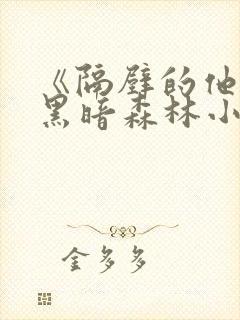 《隔壁的他
黑暗森林小
金多多